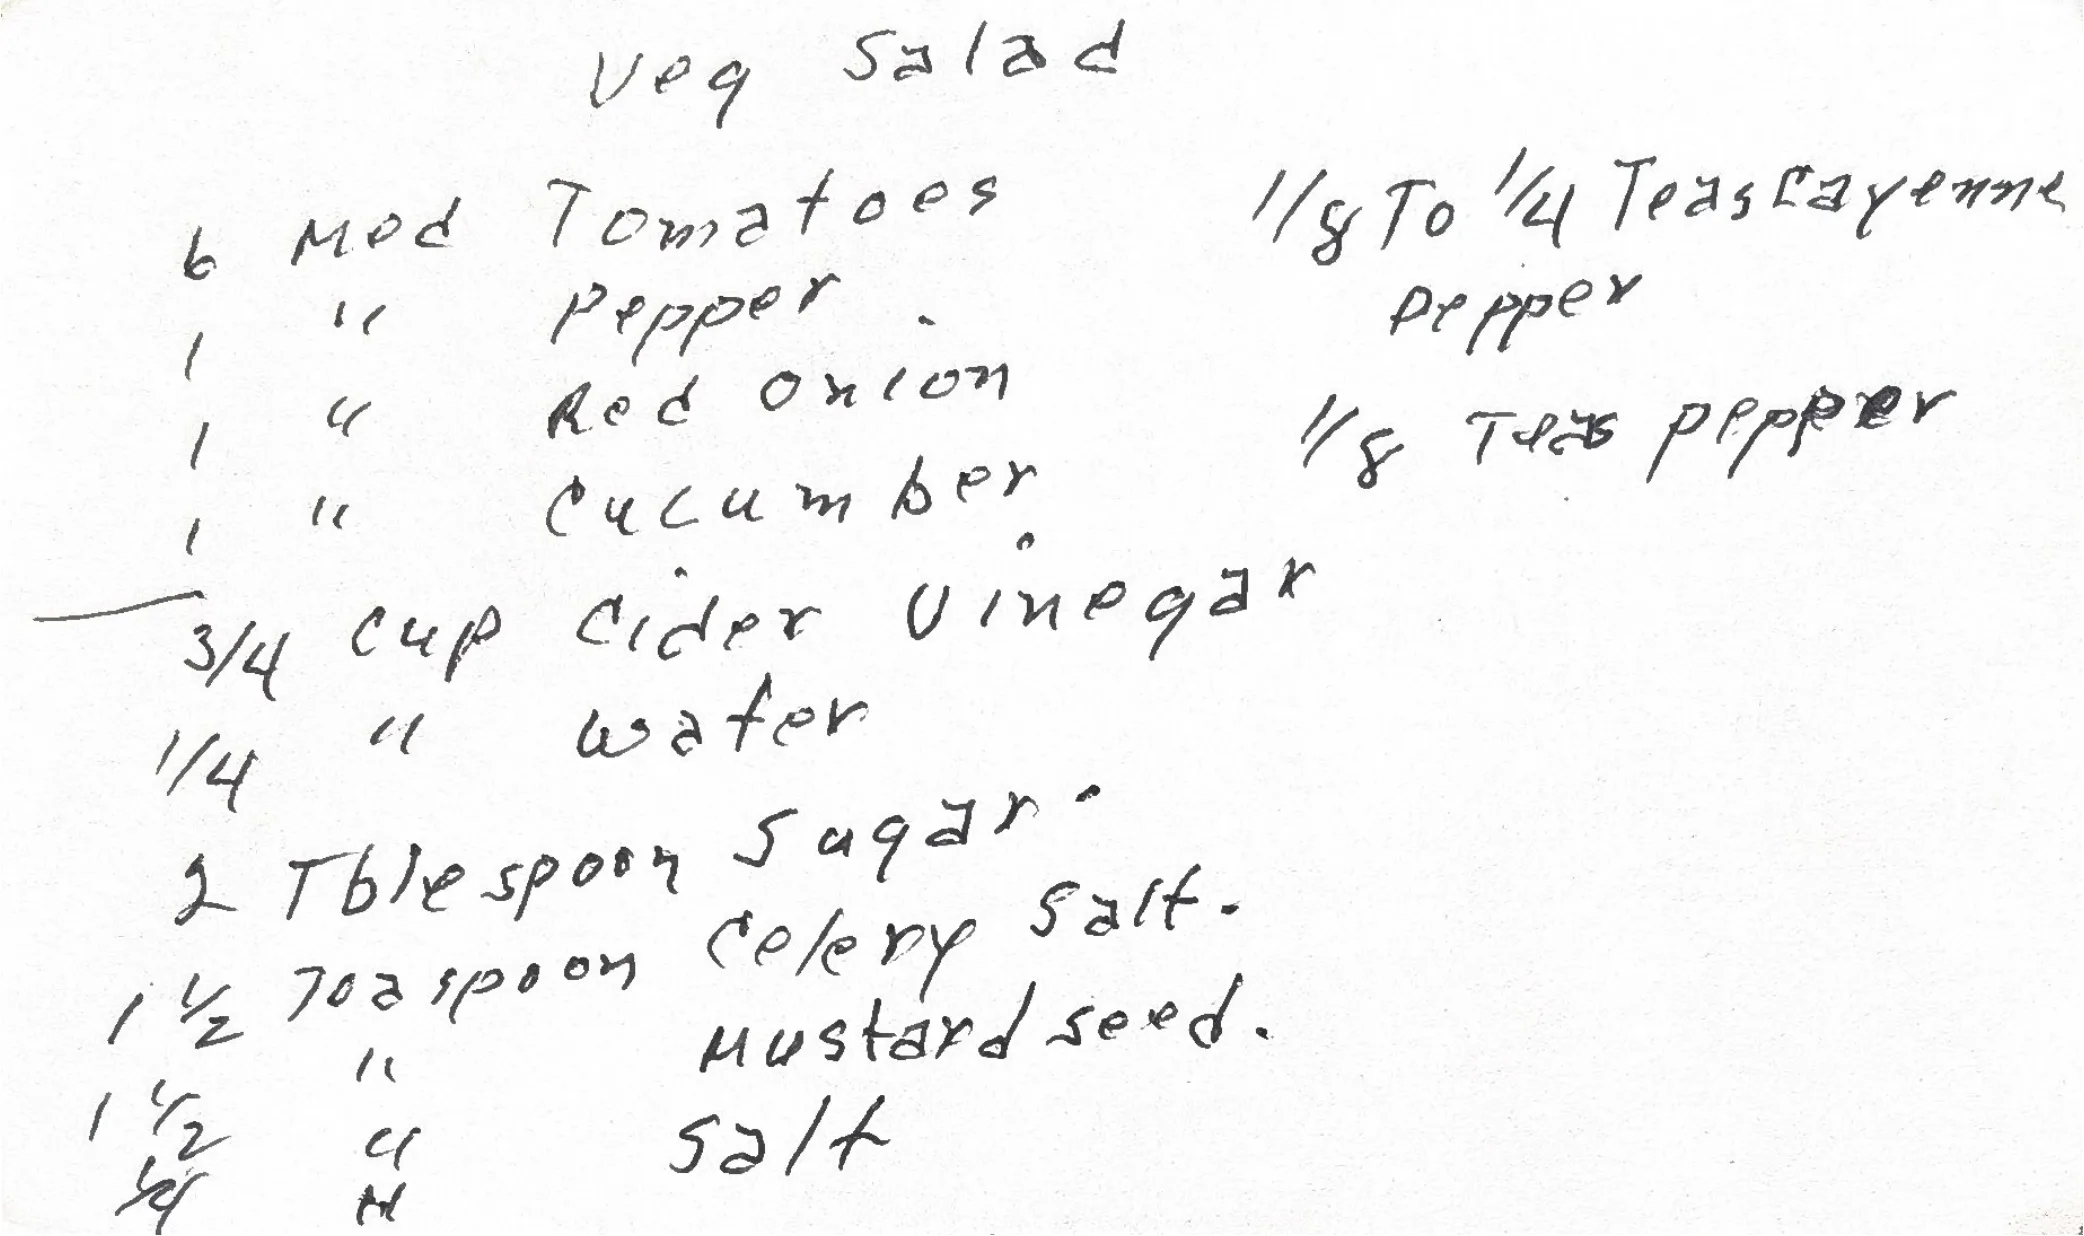 Veg Salad
6 Med Tomatoes
1 " Pepper
1 " Red Onion
1 " Cucumber
3/4 cup Cider Vinegar
1/4 " water
2 Tblespoon Sugar.
1 1/2 Teaspoon Celery Salt.
1 1/2 " Mustard seed.
" Salt
1/8 To 1/4 Teas Cayenne
Pepper
1/8 Teas pepper